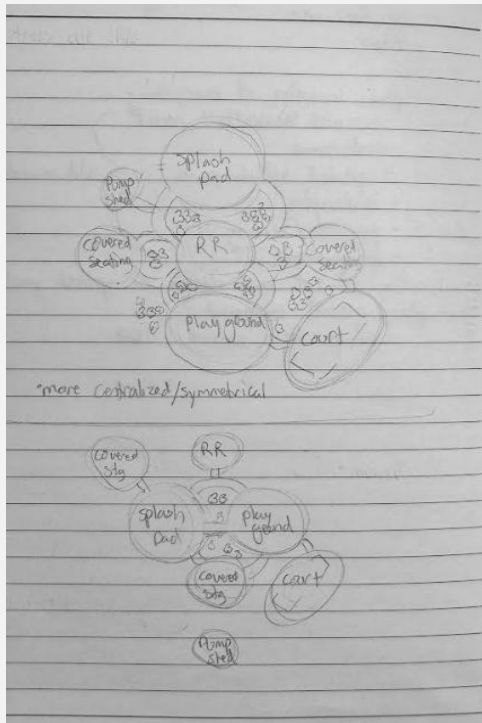 Splash
Pad
Pump
Shed
Covered
Seating
RR
Covered
Seating
Playground
Court
*more centralized/symmetrical
Covered
Stg
RR
Splash
Pad
Play
ground
Covered
Stg
Court
Pump
Shed